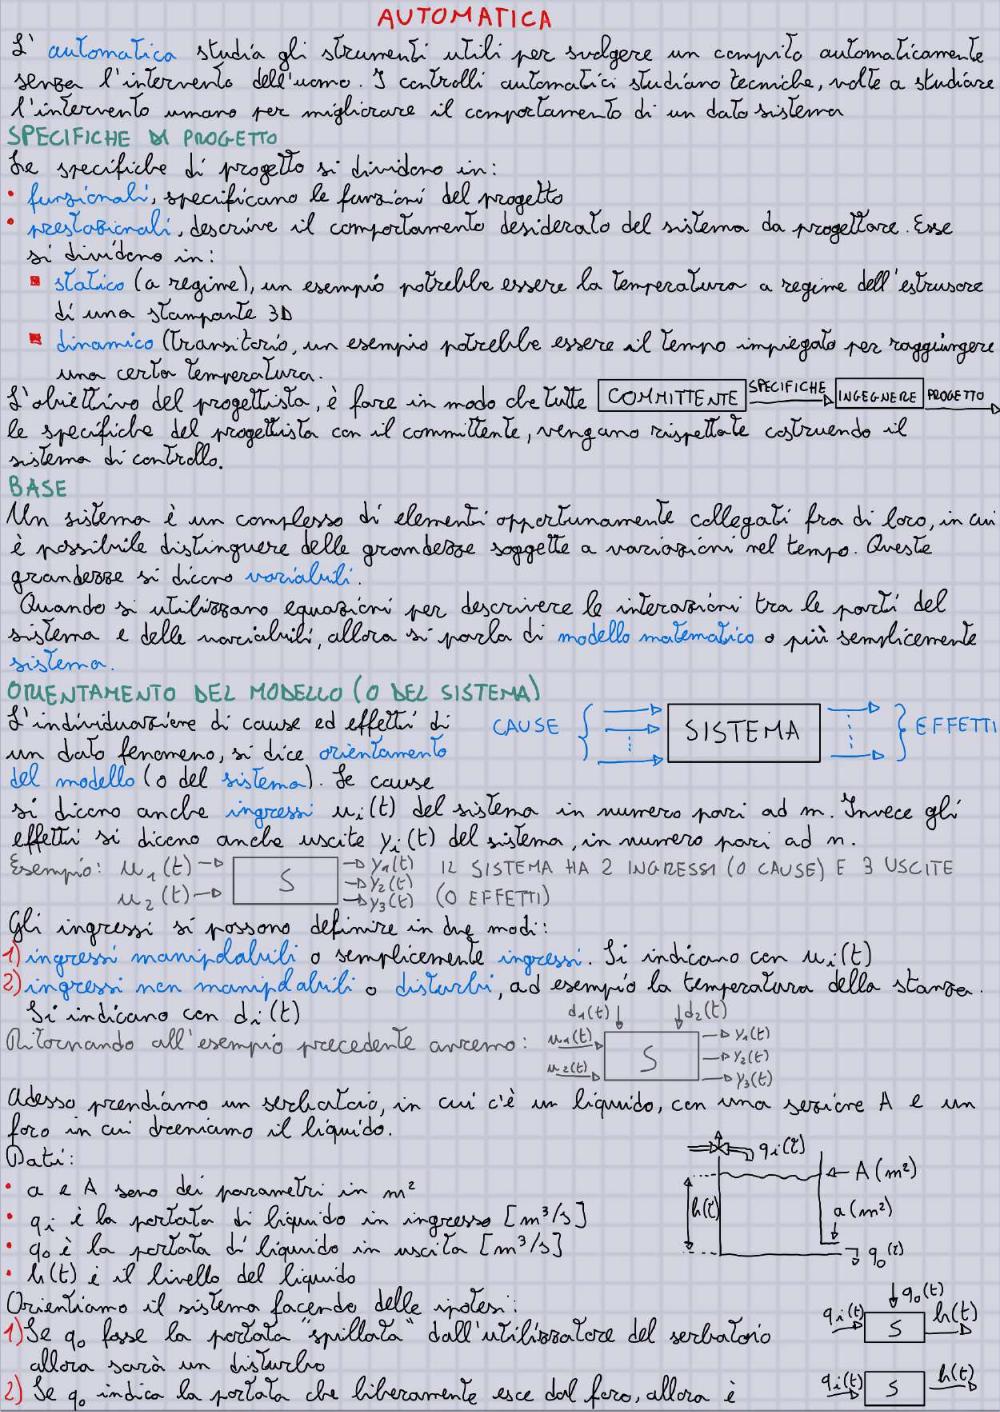 AUTOMATICA
L'automatica studia gli strumenti utili per svolgere un compito automaticamente
senza l'intervento dell'uomo. I controlli automatici studiano tecniche, volte a studiare
l'intervento umano per migliorare il comportamento di un dato sistema
SPECIFICHE DI PROGETTO
Le specifiche di progetto si dividono in:
• funzionali, specificano le funzioni del progetto
• prestazionali, descrive il comportamento desiderato del sistema da progettare. Esse
si dividono in:
▪ statico (a regime), un esempio potrebbe essere la temperatura a regime dell'estrusore
di una stampante 3D
▪ dinamico (transitorio, un esempio potrebbe essere il tempo impiegato per raggiungere
una certa temperatura.
L'obiettivo del progettista, è fare in modo che tutte
COMMITTENTE SPECIFICHE INGEGNERE PROGETTO
le specifiche del progettista con il committente, vengano rispettate costruendo il
sistema di controllo.
BASE
Un sistema è un complesso di elementi opportunamente collegati fra di loro, in cui
è possibile distinguere delle grandezze soggette a variazioni nel tempo. Queste
grandezze si dicono variabili.
Quando si utilizzano equazioni per descrivere le interazioni tra le parti del
sistema e delle variabili, allora si parla di modello matematico o più semplicemente
sistema.
ORIENTAMENTO DEL MODELLO (O DEL SISTEMA)
L'individuazione di cause ed effetti di
un dato fenomeno, si dice orientamento
del modello (o del sistema). Le cause
CAUSE SISTEMA EFFETTI
si dicono anche ingressi uᵢ(t) del sistema in numero pari ad m. Invece gli
effetti si dicono anche uscite yᵢ(t) del sistema, in numero pari ad n.
Esempio: u₁(t) S y₁(t) IL SISTEMA HA 2 INGRESSI (O CAUSE) E 3 USCITE
u₂(t) y₂(t) y₃(t) (O EFFETTI)
Gli ingressi si possono definire in due modi:
1) ingressi manipolabili o semplicemente ingressi. Si indicano con uᵢ(t)
2) ingressi non manipolabili o disturbi, ad esempio la temperatura della stanza.
Si indicano con dᵢ(t)
d₁(t) d₂(t)
Ritornando all'esempio precedente avremo: u₁(t) S y₁(t)
u₂(t) y₂(t)
y₃(t)
Adesso prendiamo un serbatoio, in cui c'è un liquido, con una sezione A e un
foro in cui dreniamo il liquido.
Dati:
qᵢ(t)
• a e A sono dei parametri in m²
A (m²)
• qᵢ è la portata di liquido in ingresso [m³/s]
h(t) a (m²)
• q₀ è la portata di liquido in uscita [m³/s]
q₀(t)
• h(t) è il livello del liquido
Orientiamo il sistema facendo delle ipotesi:
q₀(t)
1) Se q₀ fosse la portata "spillata" dall'utilizzatore del serbatoio
qᵢ(t) S h(t)
allora sarà un disturbo
2) Se q₀ indica la portata che liberamente esce dal foro, allora è
qᵢ(t) S h(t)